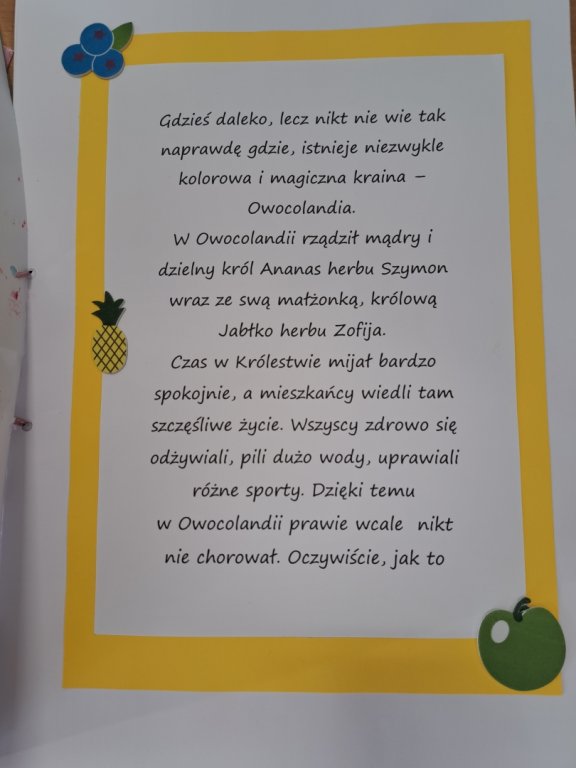 Gdzieś daleko, lecz nikt nie wie tak
naprawdę gdzie, istnieje niezwykle
kolorowa i magiczna kraina –
Owocolandia.
W Owocolandii rządził mądry i
dzielny król Ananas herbu Szymon
wraz ze swą małżonką, królową
Jabłko herbu Zofija.
Czas w Królestwie mijał bardzo
spokojnie, a mieszkańcy wiedli tam
szczęśliwe życie. Wszyscy zdrowo się
odżywiali, pili dużo wody, uprawiali
różne sporty. Dzięki temu
w Owocolandii prawie wcale nikt
nie chorował. Oczywiście, jak to